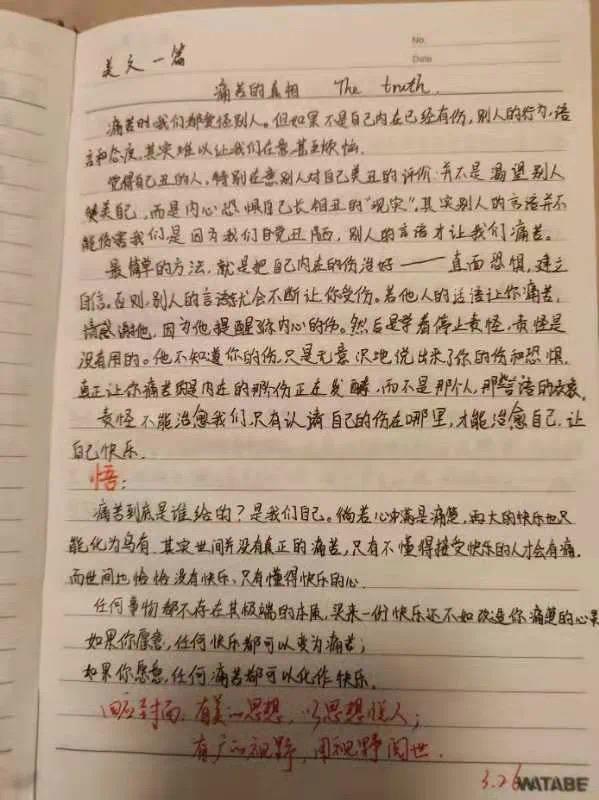 No.
美文一篇
Date
痛苦的真相 The truth.
痛苦时我们都爱怪别人。但如果不是自己内在已经有伤,别人的行为,语
言和态度,其实难以让我们在意甚至烦恼。
觉得自己丑的人,特别在意别人对自己美丑的评价,并不是渴望别人
赞美自己,而是内心恐惧自己长相丑的“现实”,其实别人的言语并不
能伤害我们是因为我们自觉丑陋,别人的言语才让我们痛苦。
最简单的方法,就是把自己内在的伤治好——直面恐惧,建立
自信。否则,别人的言语就会不断让你受伤。若他人的话语让你痛苦,
请感谢他,因为他提醒了你内心的伤。然后是学着停止责怪,责怪是
没有用的。他不知道你的伤,只是无意识地说出来了你的伤和恐惧,
真正让你痛苦的是内在的那个伤正在发酵,而不是那个人,那些话的
责怪不能治愈我们,只有认清自己的伤在哪里,才能治愈自己,让
自己快乐.
悟:
痛苦到底是谁给的?是我们自己。倘若心中满是痛楚,再大的快乐也只
能化为乌有.其实世间并没有真正的痛苦,只有不懂得接受快乐的人才会有痛.
而世间也恰恰没有快乐,只有懂得快乐的心.
任何事物都不存在其极端的本质,买来一份快乐还不如改造你痛楚的心灵
如果你愿意,任何快乐都可以变为痛苦;
如果你愿意,任何痛苦都可以化作快乐.
回应封面:有美的思想,以思想悦人;
有广的视野,用视野阅世.
3.26
WATABE